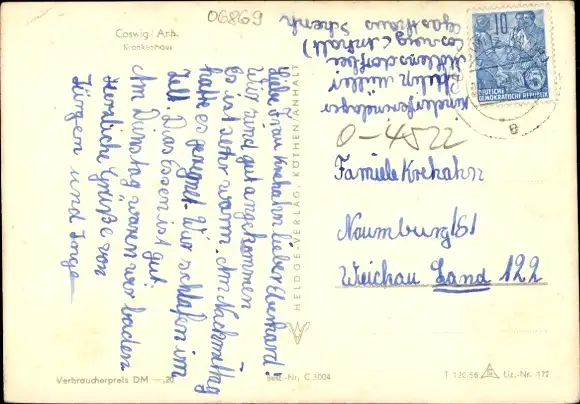 Coswig / Anh.
Krankenhaus
06869
Liebe Frau Krehahn lieber Eberhard!
Wir sind gut angekommen
Es ist sehr warm. Am Nachmittag
hatte es geregnet. Wir schlafen im
Zelt. Das Essen ist gut.
Am Dienstag waren wir baden
Herzliche Grüße von
Jürgen und Inge
HELDGE-VERLAG, KÖTHEN/ANHALT
Kinderferienlager
Müller
Coswig (Anhalt)
Gasthaus Schenk
10
DEUTSCHE
DEMOKRATISCHE REPUBLIK
0-4822
Famiele Krehahn
Naumburg/S1
Weichau Land 122
Verbraucherpreis DM —,20
Best.-Nr. C 3004
T 120/56
Liz.-Nr. 172